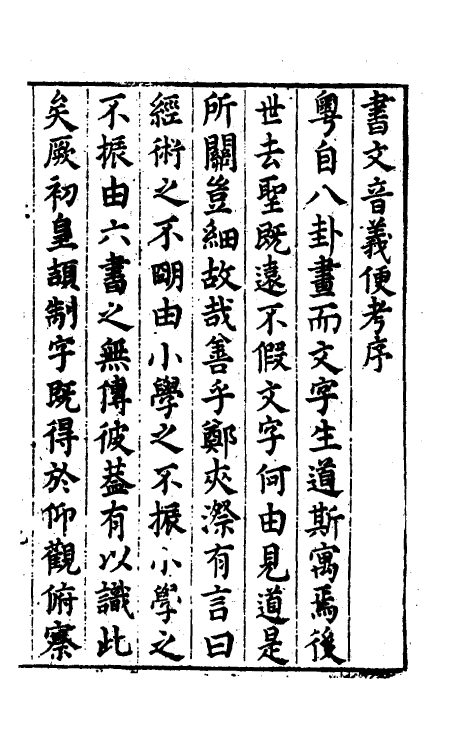 書文音義便考序
粵自八卦畫而文字生道斯寓焉後
世去聖既遠不假文字何由見道是
所關豈細故哉善乎鄭夾漈有言曰
經術之不明由小學之不振小學之
不振由六書之無傳彼蓋有以識此
矣厥初皇頡制字既得於仰觀俯察